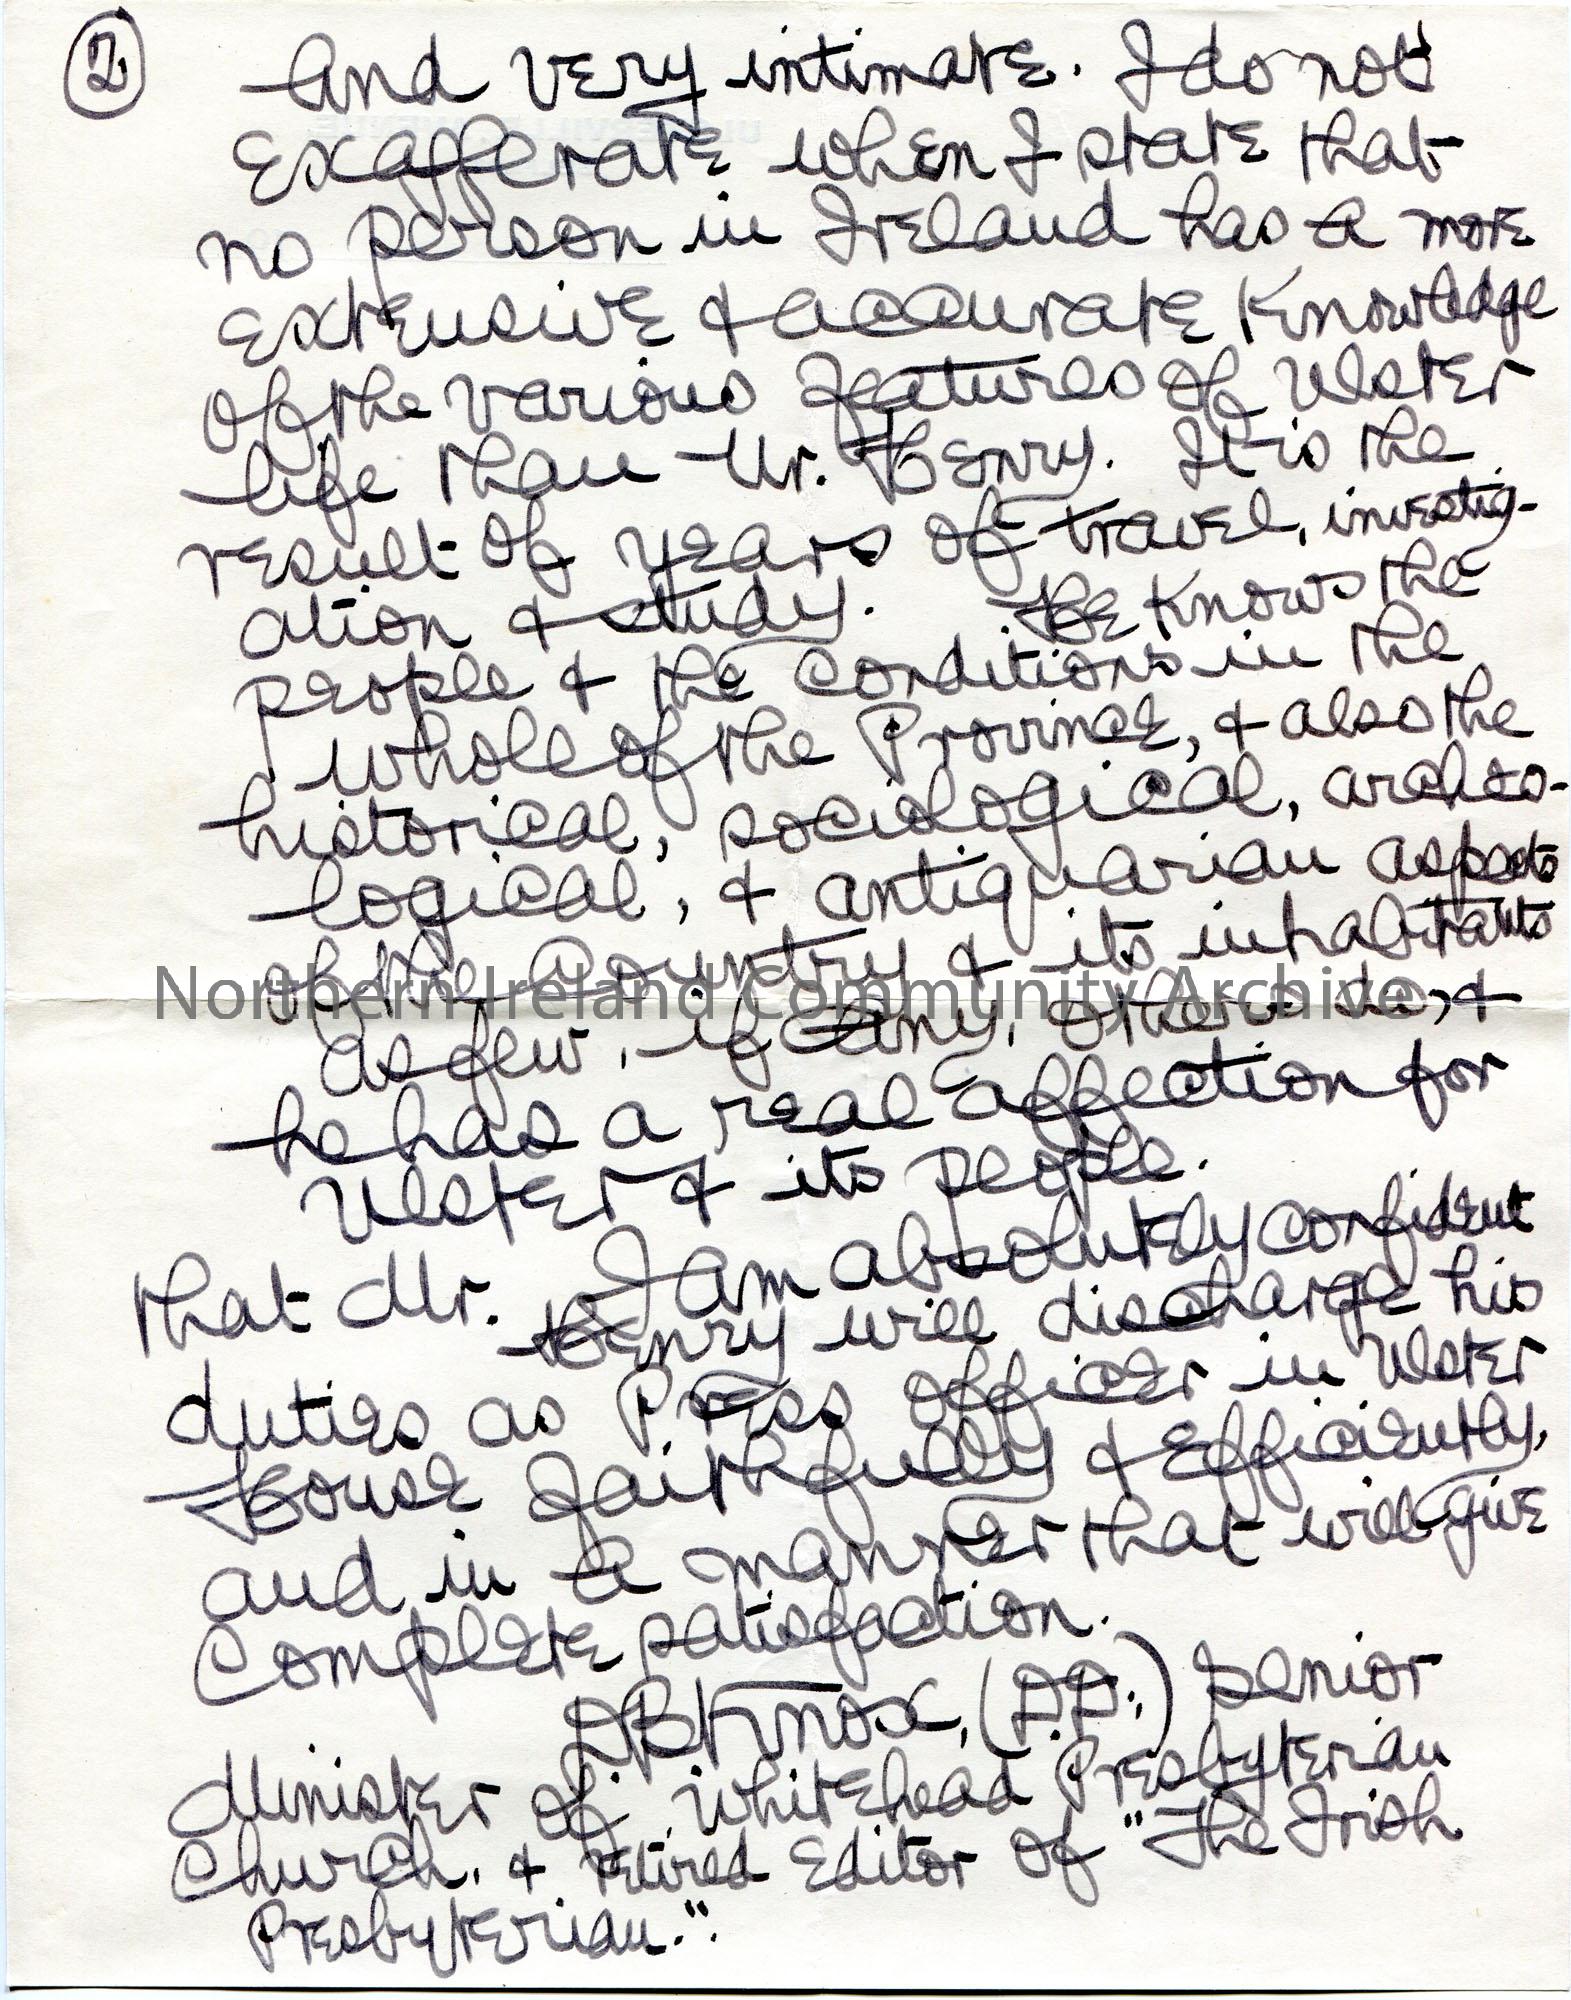 2
and very intimate. I do not
exaggerate when I state that
no person in Ireland has a more
extensive & accurate knowledge
of the various features of Ulster
life than Mr. Henry. It is the
result of years of travel, investig-
ation & study. He knows the
people & the conditions in the
whole of the Province, & also the
historical, sociological, archæo-
logical, & antiquarian aspects
of the country & its inhabitants
Northern Ireland Community Archive
as few, if any, others do, &
he has a real affection for
Ulster & its people.
I am absolutely confident
that Mr. Henry will discharge his
duties as Press Officer in Ulster
House faithfully & efficiently,
and in a manner that will give
complete satisfaction.
D B Knox, (D.D.) Senior
Minister of Whitehead Presbyterian
Church, & retired Editor of "The Irish
Presbyterian.".